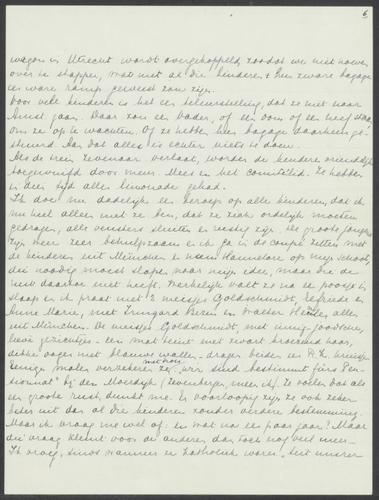 6
wagon in Utrecht wordt overgekoppeld, zoodat we niet hoeven
over te stappen, wat met al die kinderen + hun zware bagage
een ware ramp geweest zou zijn.
Voor vele kinderen is het een teleurstelling, dat ze niet naar
gaan. Daar zou een vader, of een oom of een neef staan
om ze op te wachten. Of ze hebben hun bagage daarheen ge-
stuurd. Aan dat alles is echter niets te doen.
Als de trein Zevenaar verlaat, worden de kinderen vriendelijk
toegewuifd door mevr. Mees en het comité lid. Ze hebben
in deze tijd alle limonade gehad.
Ik doe nu dadelijk een beroep op alle kinderen, dat ik
nu heel alleen met ze ben, dat ze zich ordelijk moeten
gedragen, alle vensters sluiten en rustig zijn. De groote jongens
zijn weer zeer behulpzaam en ik ga in de coupé zitten met
de kinderen uit München en neem Hannelore op mijn schoot,
die noodig moest slapen, naar mijn idee, maar die de
rust daarvoor niet heeft. Werkelijk valt ze na een poosje in
slaap en ik praat met 2 meisjes Goldschmidt, Elfriede en
Anne Marie, met Irmgard en Walter alles
uit München. De meisjes Goldschmidt, met innig-joodsche,
lieve gezichtjes - een met heel met zwart kroezend haar,
dikke oogen met blauwe wallen - dragen beiden een R.K. kruisje.
Eenige malen verzekeren ze met trots: wir sind bestimmt fürs Pen-
sionnat" bij den Moerdijk (Zevenbergen meen ik). Ze voelen dat als
een groote rust, dunkt me. En voorloopig zijn ze ook zeker
beter uit dan al die kinderen zonder verdere bestemming.
Maar ik vraag me wel af: en wat na een paar jaar? Maar
die vraag klemt voor de anderen dan toch nog veel meer.-
Ik vroeg, sinds wanneer ze katholiek waren. "Seit unserer